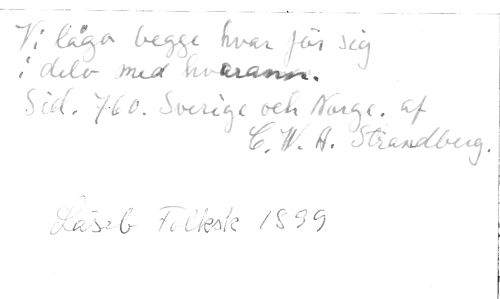 Vi lågo begge hvar för sig
i delo med hvarann.
Sid. 760. Sverige och Norge. af
C. W. A. Strandberg.
Läseb Folksk 1899